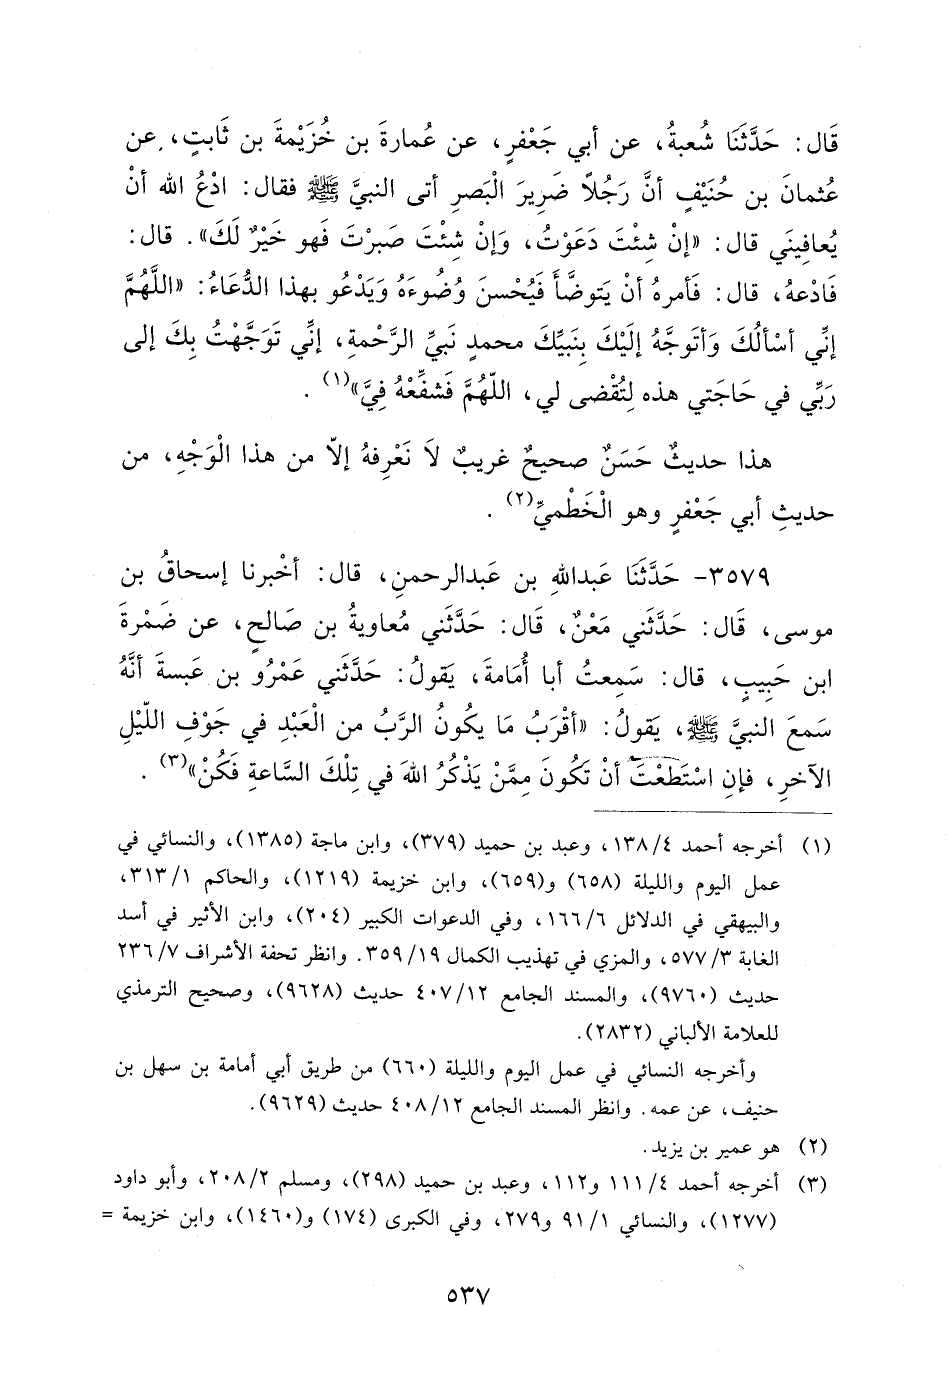 قَال: حَدَّثَنَا شُعبةُ، عن أبي جَعْفرٍ، عن عُمارةَ بن خُزَيْمةَ بن ثَابتٍ، عن
عُثمانَ بن حُنَيْفٍ أنَّ رَجُلاً ضَرِيرَ الْبَصرِ أتى النبيَّ ﷺ فقال: ادْعُ الله أنْ
يُعافِيَني قال: «إنْ شِئْتَ دَعَوْتُ، وَإنْ شِئْتَ صَبرْتَ فَهو خَيْرٌ لَكَ». قال:
فَادْعهُ، قال: فَأمرهُ أنْ يَتوضَّأَ فَيُحْسنَ وُضُوءَهُ وَيَدْعُو بهذا الدُّعَاءُ: «اللَّهُمَّ
إنِّي أسْألُكَ وَأتوجَّهُ إلَيْكَ بِنَبيِّكَ محمدٍ نَبيِّ الرَّحْمةِ، إنِّي تَوَجَّهْتُ بِكَ إلى
رَبِّي في حَاجَتي هذه لِتُقْضى لي، اللّهُمَّ فَشفِّعْهُ فِيَّ»(١) .
هذا حديثٌ حَسَنٌ صحيحٌ غريبٌ لاَ نَعْرِفهُ إلاّ من هذا الْوَجْهِ، من
حديثِ أبي جَعْفرٍ وهو الْخَطْميِّ(٢) .
٣٥٧٩- حَدَّثَنَا عَبداللهِ بن عَبدالرحمنِ، قال: أخْبرنا إسحاقُ بن
موسى، قَال: حَدَّثَني مَعْنٌ، قَال: حَدَّثَني مُعاويةُ بن صَالحٍ، عن ضَمْرةَ
ابن حَبِيبٍ، قال: سَمِعتُ أبا أُمَامةَ، يَقولُ: حَدَّثَني عَمْرُو بن عَبسةَ أنَّهُ
سَمعَ النبيَّ ﷺ، يَقولُ: «أقْرَبُ مَا يكُونُ الرَّبُ من الْعَبْدِ في جَوْفِ اللّيْلِ
الآخرِ، فإنِ اسْتَطَعْتَ أنْ تَكُونَ مِمَّنْ يَذْكُرُ اللهَ في تِلْكَ السَّاعةِ فَكُنْ»(٣) .
(١) أخرجه أحمد ٤/ ١٣٨، وعبد بن حميد (٣٧٩)، وابن ماجة (١٣٨٥)، والنسائي في
عمل اليوم والليلة (٦٥٨) و(٦٥٩)، وابن خزيمة (١٢١٩)، والحاكم ١/ ٣١٣،
والبيهقي في الدلائل ٦/ ١٦٦، وفي الدعوات الكبير (٢٠٤)، وابن الأثير في أسد
الغابة ٣/ ٥٧٧، والمزي في تهذيب الكمال ١٩/ ٣٥٩. وانظر تحفة الأشراف ٧/ ٢٣٦
حديث (٩٧٦٠)، والمسند الجامع ١٢/ ٤٠٧ حديث (٩٦٢٨)، وصحيح الترمذي
للعلامة الألباني (٢٨٣٢).
وأخرجه النسائي في عمل اليوم والليلة (٦٦٠) من طريق أبي أمامة بن سهل بن
حنيف، عن عمه. وانظر المسند الجامع ١٢/ ٤٠٨ حديث (٩٦٢٩).
(٢) هو عمير بن يزيد.
(٣) أخرجه أحمد ٤/ ١١١ و١١٢، وعبد بن حميد (٢٩٨)، ومسلم ٢/ ٢٠٨، وأبو داود
(١٢٧٧)، والنسائي ١/ ٩١ و٢٧٩، وفي الكبرى (١٧٤) و(١٤٦٠)، وابن خزيمة =
٥٣٧